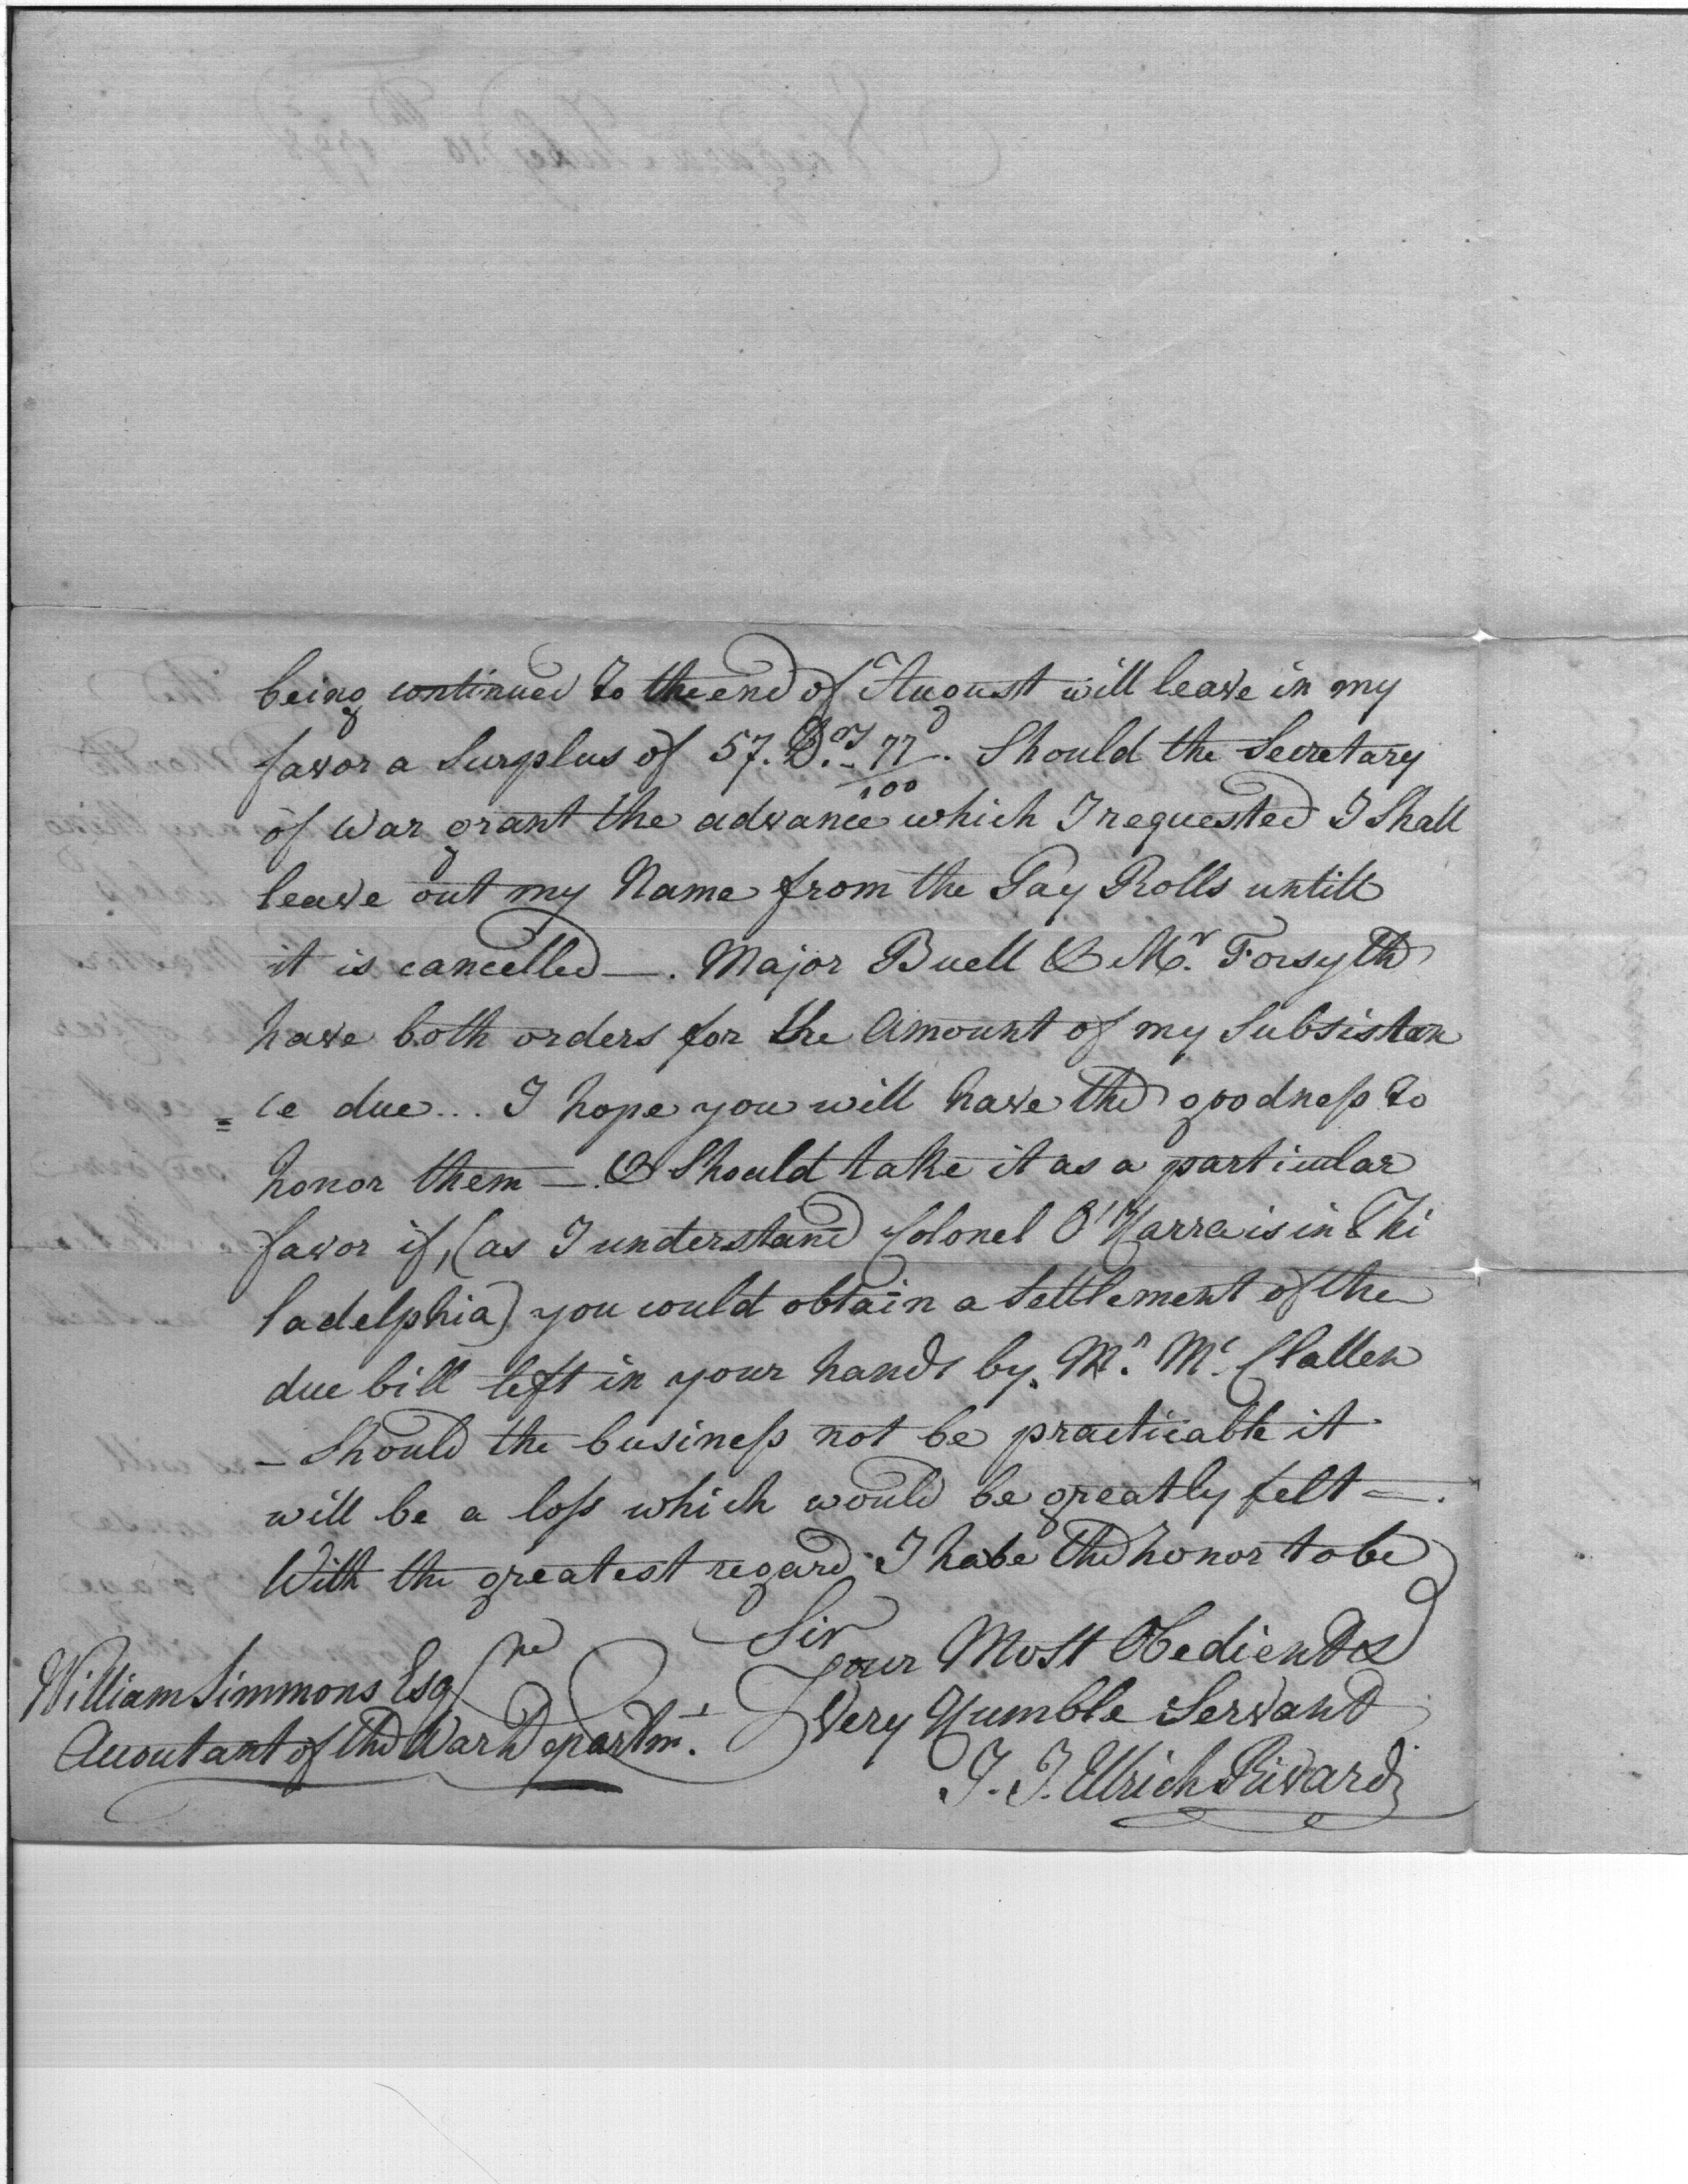 being continued to the end of August will leave in my
favor a Surplus of 57. D.rs 77/100. Should the Secretary
of War grant the advance which I requested I Shall
leave out my Name from the Pay Rolls untill
it is cancelled —. Major Buell & Mr. Forsyth
have both orders for the Amount of my Subsistan
= ce due... I hope you will have the goodness to
honor them —. & Should take it as a particular
favor if, (as I understand Colonel O'Harra is in Phi
ladelphia) you could obtain a Settlement of the
due bill left in your hands by Mr. Mc. Clallen
– Should the business not be practicable it
will be a loss which would be greatly felt =.
With the greatest regard I have the honor to be
Sir
Your Most Obedient &
Very Humble Servant
J. J. Ulrich Rivardi
William Simmons Esqre
Accoutant of the War Departmt.